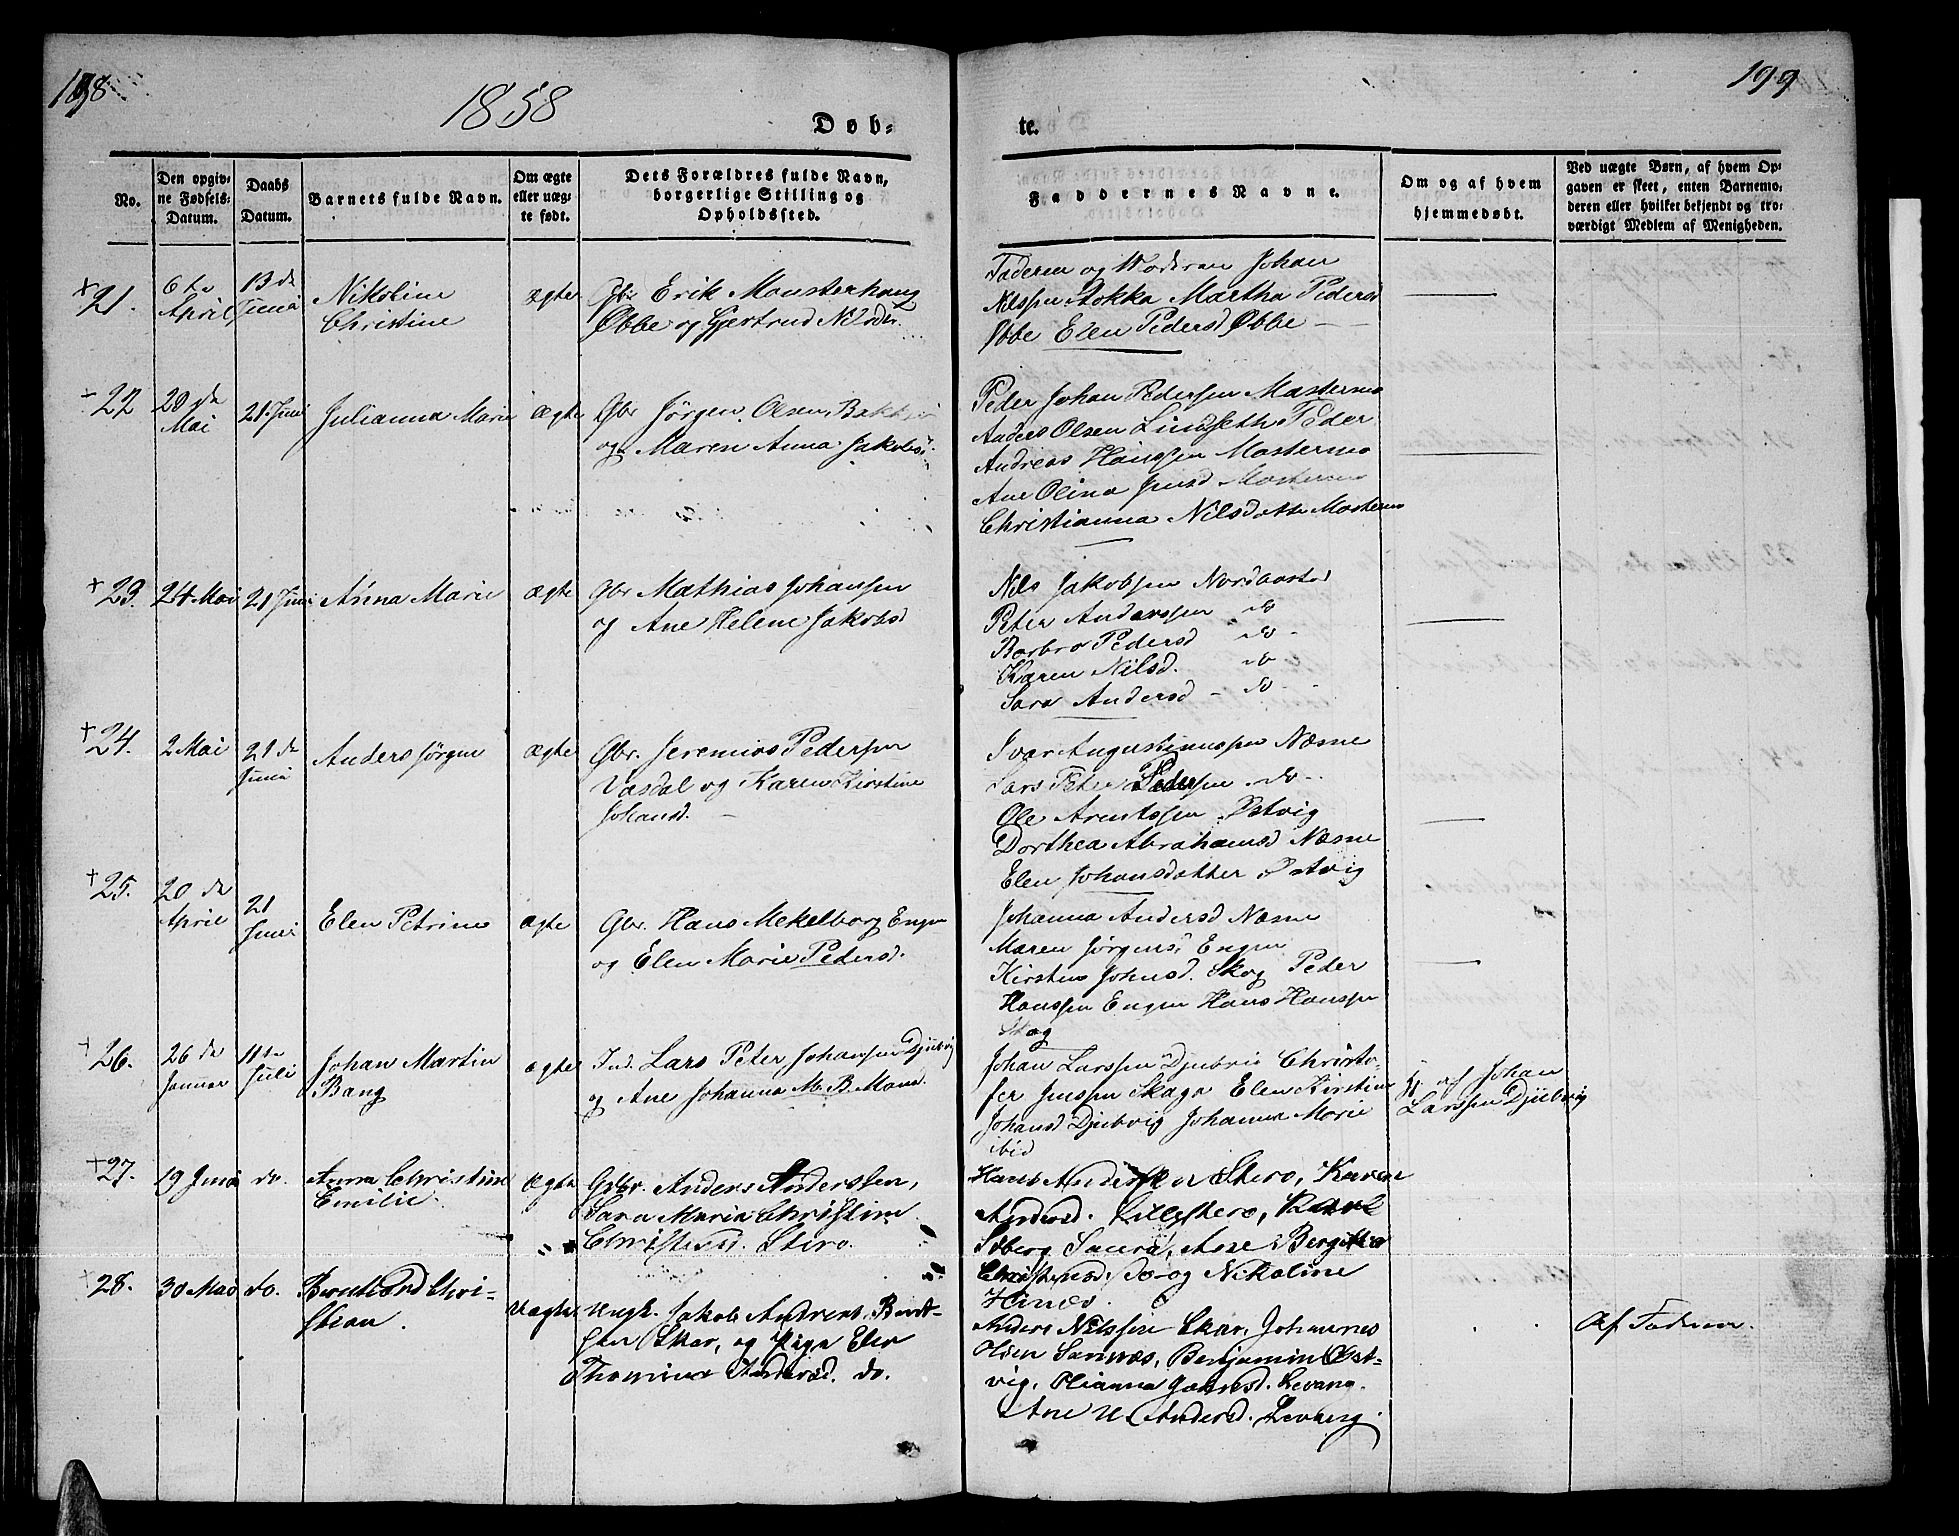 198
1858
199
Døb-
te.
No.
Den opgiv-
ne Fødsels-
Datum.
Daabs
Datum.
Barnets fulde Navn.
Om ægte
eller uæg-
te født.
Dets Forældres fulde Navn,
borgerlige Stilling og
Opholdssted.
Faddernes Navne.
Om og af hvem
hjemmedøbt.
Ved uægte Børn, af hvem Op-
gaven er skeet, enten Barnemo-
deren eller hvilket bekjendt og tro-
værdigt Medlem af Menigheden.
+ 21.
6te
April
13de
Juni
Nikoline
Christine
ægte
Gbr Erik Monsterhaug
Øbbe og Gjertrud Nilsdr.
Faderen og Moderen Johan
Nilssen Stokka Martha Pedersd
Øbbe Elen Pedersd Øbbe
22
20de
Mai
21. Juni
Julianna Marie
ægte
Gbr Jörgen Olsen
og Maren Anna Jakobsd.
Peder Johan Pedersen Mastermo
Anders Olsen Lindseth Peder
Andreas Hanssen Mostermo
Ane Olina Jensd Mostermo
Christianna Nilsdatter Mostermo
+ 23.
24 Mai
21 Juni
Anna Marie
ægte
Gbr Mathias Johansen
og Ane Helene Jakobsd
Nils Jakobsen
Peter Anderssen do
Barbro Pedersd do
Karen Nilsd. do
Sara Andersd - do -
+ 24.
2 Mai
21de
Juni
Anders Jörgen
ægte
Gbr. Jeremias Pedersen
Vasdal og Karen Kirstine
Johansd.
Ivar Augustinussen Næsne
Lars Peter Pedersen do
Ole Arentssen Østvig
Dorthea Abrahamsd Næsne
Elen Johansdatter Østvig
+ 25.
20de
April
21
Juni
Elen Petrine
ægte
Gbr. Hans Mekelborg Engen
og Elen Marie Pedersd.
Johanna Andersd Næsne
Maren Jörgens. Engen
Kirsten Johnsd. Skog Peder
Hanssen Engen Hans Hanssen
Skog
+ 26.
26de
Januar
11te
Juli
Johan Martin
Bang
ægte
Ind. Lars Peter Johansen Djubvig
og Ane Johanna M. B. Monsd.
Johan Larssen Djubvig Christo-
fer Jenssen Skaga Elen Kirstine
Johansd Djubvig Johanna Marie
ibid
af Johan
Larssen Djubvig
+ 27.
19 Juni
do.
Anna Christine
Emilie
ægte
Gbr. Anders Anderssen,
Sara Maria Christine
Christensd. Stero.
Hans Anderssen Stero, Karen
Andersd. Lillestero,
Solberg Ane Bergitta
Christensd, do og Nikoline
28.
30 Mai
do.
Bernhard Chri-
stian.
uægte
Ungk. Jakob Andreas Bent-
sen Skar, og Pige Elen
Thomine Andersd. do.
Anders Nilssen Skar, Johannes
Olsen Sannæs, Benjamin Øst-
vig, Olianna Levang.
Ane M. Andersd. Levang.
Af Faderen.